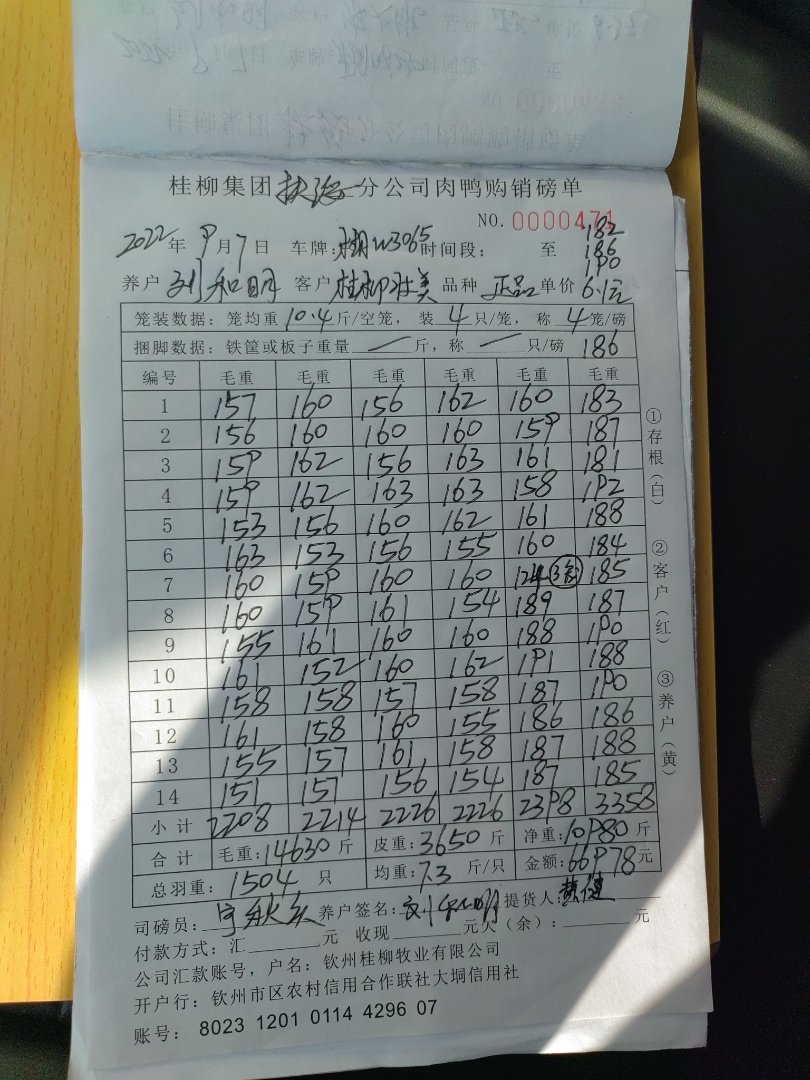 桂柳集团扶绥分公司肉鸭购销磅单
NO. 0000471
182
186
190
2022年 9月 7日 车牌: W3065 时间段: 至
养户 刘和明 客户 桂柳 美 品种 正品 单价 6.1元
笼装数据: 笼均重 10.4 斤/空笼, 装 4 只/笼, 称 4 笼/磅
捆脚数据: 铁筐或板子重量 — 斤, 称 — 只/磅 186
编号 毛重 毛重 毛重 毛重 毛重 毛重
1 157 160 156 162 160 183
2 156 160 160 160 159 187
3 159 162 156 163 161 181
4 159 162 163 163 158 192
5 153 156 160 162 161 188
6 163 153 156 155 160 184
7 160 159 160 160 124 185
8 160 159 161 154 189 187
9 155 161 160 160 188 190
10 161 152 160 162 191 188
11 158 158 157 158 187 190
12 161 158 160 155 186 186
13 155 157 161 158 187 188
14 151 157 156 154 187 185
小计 2208 2214 2226 2226 2398 3358
合计 毛重: 14630 斤 皮重: 3650 斤 净重: 10980 斤
总羽重: 1504 只 均重: 7.3 斤/只 金额: 66978 元
①存根(白) ②客户(红) ③养户(黄)
司磅员: 养户签名: 刘和明 提货人: 黄健
付款方式: 汇 元 收现 元欠(余): 元
公司汇款账号, 户名: 钦州桂柳牧业有限公司
开户行: 钦州市区农村信用合作联社大垌信用社
账号: 8023 1201 0114 4296 07